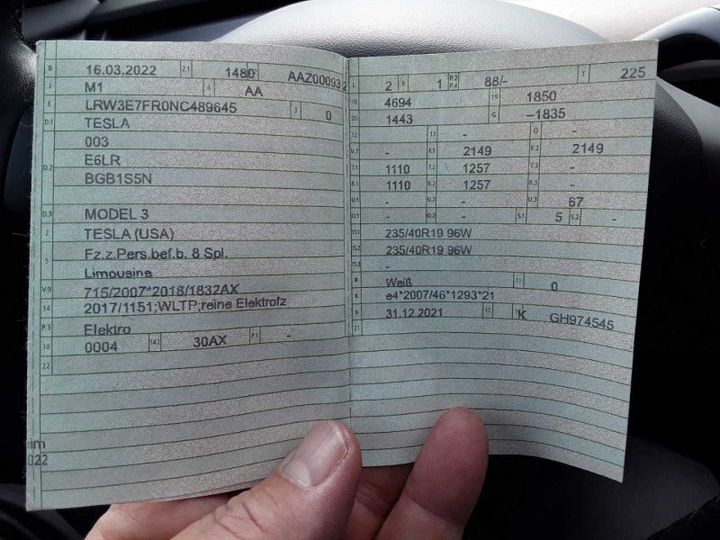 B 16.03.2022 2.1 1480 AAZ00093 2
J M1 4 AA
E LRW3E7FR0NC489645 3 0
D.1 TESLA
003
D.2 E6LR
BGB1S5N
D.3 MODEL 3
2 TESLA (USA)
5 Fz.z.Pers.bef.b. 8 Spl.
Limousine
V.9 715/2007*2018/1832AX
14 2017/1151;WLTP;reine Elektrofz
P.3 Elektro
10 0004 14.1 30AX P.1 -
22
eim
022
L 2 9 1 P.2 P.4 88/- T 225
18 4694 19 1850
20 1443 G -1835
12 - 13 - Q -
V.7 - F.1 2149 F.2 2149
7.1 1110 7.2 1257 7.3 -
8.1 1110 8.2 1257 8.3 -
U.1 - U.2 - U.3 67
O.1 - O.2 - S.1 5 S.2 -
15.1 235/40R19 96W
15.2 235/40R19 96W
15.3 -
R Weiß 11 0
K e4*2007/46*1293*21
6 31.12.2021 17 K 16 GH974545
21